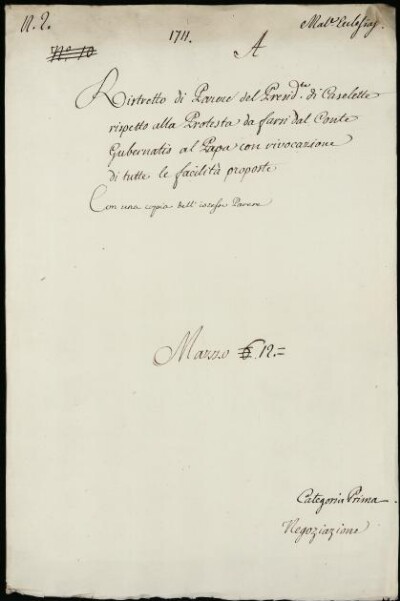 N. 2.
1711.
Mat.e Eccles.
N.o 10
A
Ristretto di Parere del Presid.te di Caselette
rispetto alla Protesta da farsi dal Conte
Gubernatis al Papa con rivocazione
di tutte le facilità proposte
Con una copia dell'istesso Parere
Marzo 6 12.=
Categoria Prima
Negoziazione